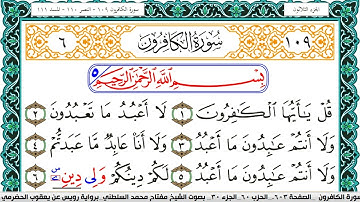 سورة الكافرون ١٠٩ - النصر ١١٠ - المسد ١١١
الجزء الثلاثون
١٠٩ سُورَةُ الكَافِرُونَ ٦
بِسْمِ اللَّهِ الرَّحْمَٰنِ الرَّحِيمِ ٥
قُلْ يَٰٓأَيُّهَا ٱلْكَٰفِرُونَ ١ لَآ أَعْبُدُ مَا تَعْبُدُونَ ٢
وَلَآ أَنتُمْ عَٰبِدُونَ مَآ أَعْبُدُ ٣ وَلَآ أَنَا۠ عَابِدٌ مَّا عَبَدتُّمْ ٤
وَلَآ أَنتُمْ عَٰبِدُونَ مَآ أَعْبُدُ ٥ لَكُمْ دِينُكُمْ وَلِى دِينِ ٦
الصفحة ٦٠٣ - الحزب ٦٠ - الجزء ٣٠ - بصوت الشيخ مفتاح محمد السلطني - برواية رويس عن يعقوب الحضرمي